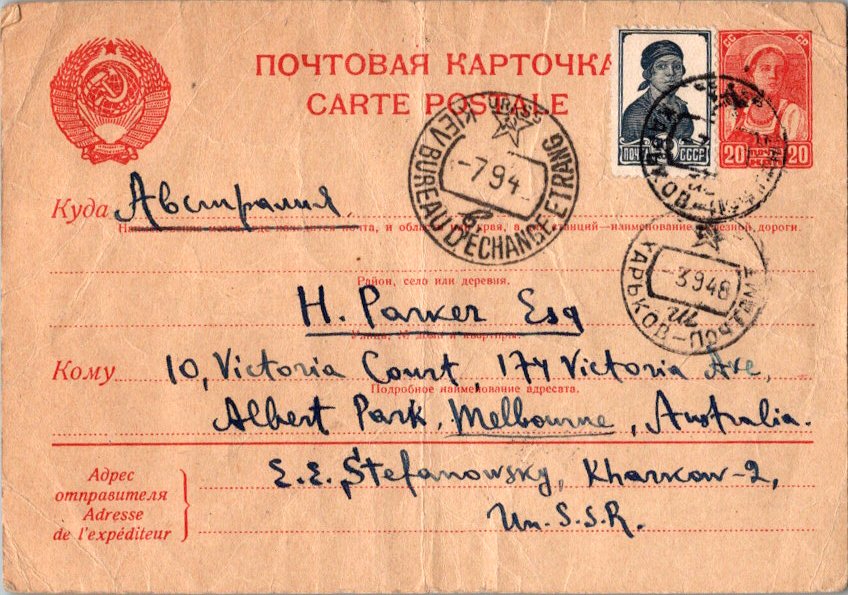 ПОЧТОВАЯ КАРТОЧКА
CARTE POSTALE
ПОЧТА СССР
20 20
URSS
KIEV BUREAU D'ECHANGE ETRANG
-7 9 4
Куда Австралия
и области или края, а для станций—наименование железной дороги.
ХАРЬКОВ-ПОЧТАМТ
-3 9 48
Район, село или деревня.
H. Parker Esq
Улица, № дома и квартиры.
Кому 10, Victoria Court, 174 Victoria Ave,
Подробное наименование адресата.
Albert Park, Melbourne, Australia.
Адрес
отправителя
Adresse
de l'expéditeur
E.E. Stefanowsky, Kharkow-2,
Un.S.S.R.